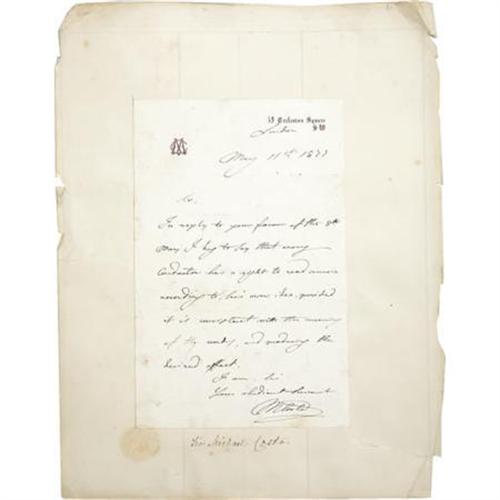 59 Eccleston Square
S W
London
May 11th 1877
Sir.
In reply to your favor of the 8th
May I beg to say that every
Conductor has a right to read
according to his own idea, provided
it is consistent with the meaning
of the words, and produces the
desired effect.
I am, Sir
Your obedient Servant
M Costa
Sir Michael Costa.